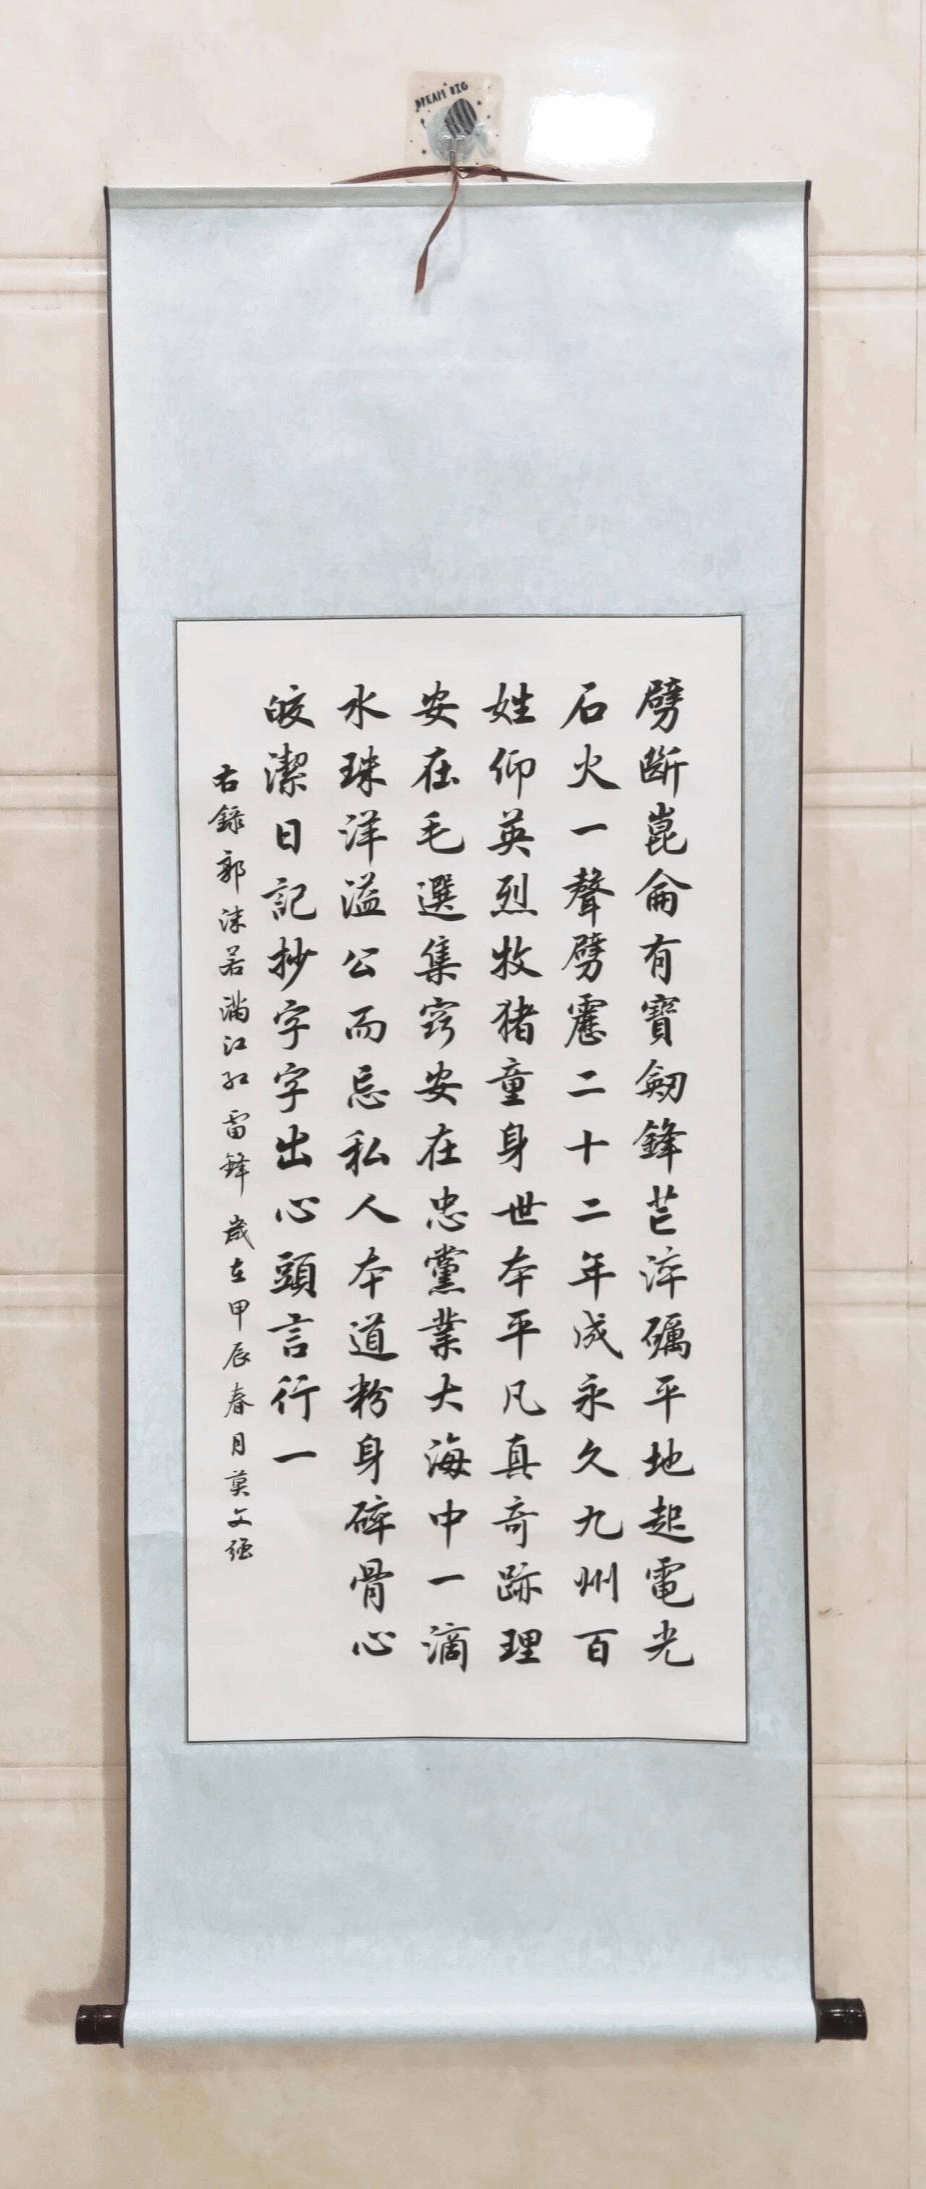 DREAM BIG
劈斷崑侖有寶劒鋒芒淬礪平地起電光
石火一聲劈靂二十二年成永久九州百
姓仰英烈牧猪童身世本平凡真奇跡理
安在毛選集窍安在忠黨業大海中一滴
水珠洋溢公而忘私人本道粉身碎骨心
皎潔日記抄字字出心頭言行一
右錄郭沫若滿江紅雷鋒 歲在甲辰春月莫文強